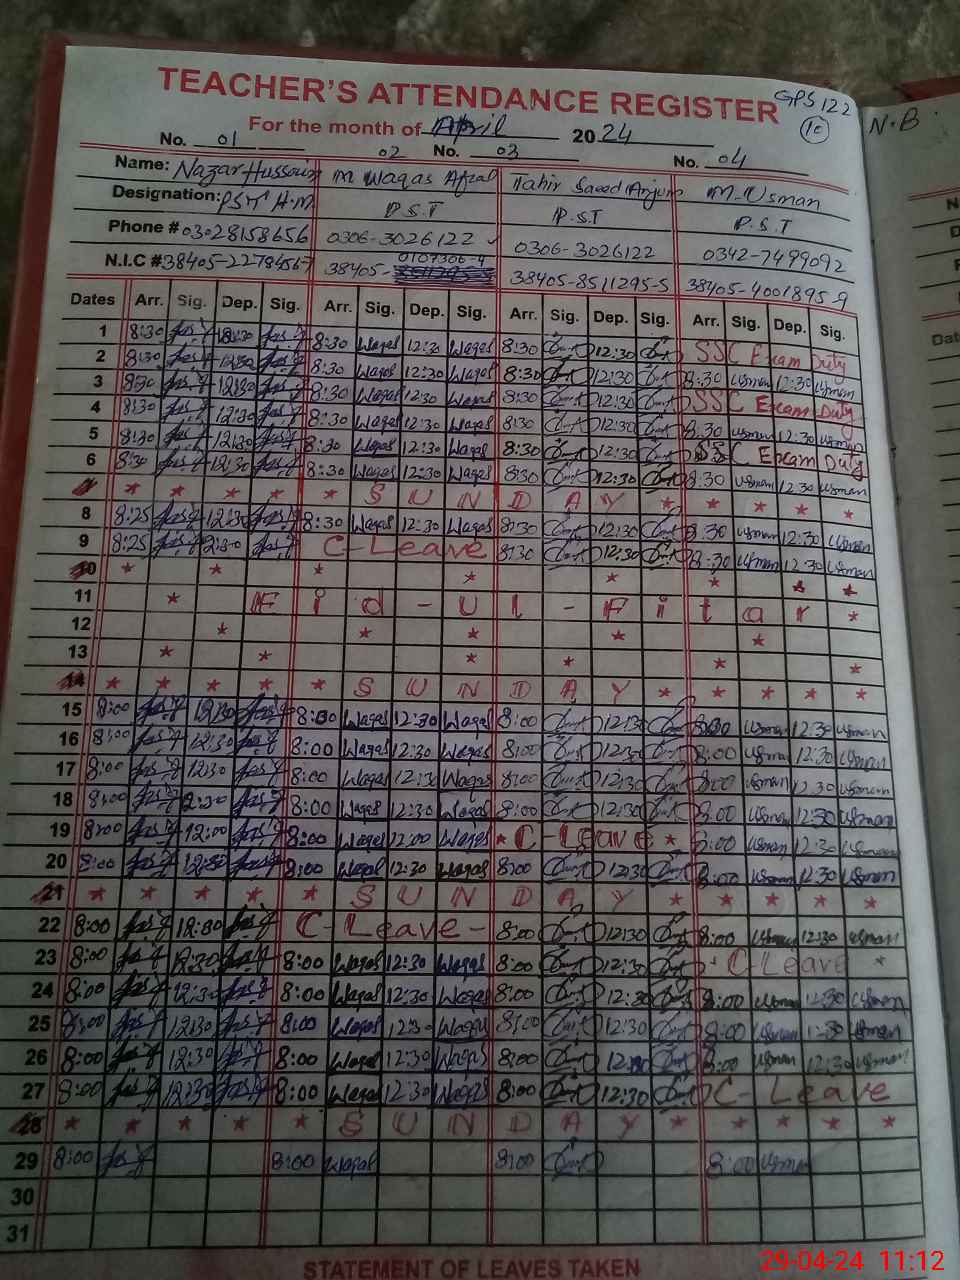 TEACHER'S ATTENDANCE REGISTER
GPS 122
10
N.B
For the month of April 2024
No. 01 02 No. 03 No. 04
Name: Nazar Hussain M Waqas Afzal Tahir Saeed Anjum M. Usman
Designation: PST H.M P.S.T P.S.T P.S.T
Phone # 03028158656 0306-3026122 0306-3026122 0342-7499092
N.I.C # 38405-2278456-7 38405- 0107306-9 38405-8511295-5 38405-4001895-9
Dates Arr. Sig. Dep. Sig. Arr. Sig. Dep. Sig. Arr. Sig. Dep. Sig. Arr. Sig. Dep. Sig.
1 8:30 12:30 8:30 Waqas 12:30 Waqas 8:30 12:30 SSC Exam Duty
2 8:30 12:30 8:30 Waqas 12:30 Waqas 8:30 12:30 8:30 Usman 12:30 Usman
3 8:30 12:30 8:30 Waqas 12:30 Waqas 8:30 12:30 SSC Exam Duty
4 8:30 12:30 8:30 Waqas 12:30 Waqas 8:30 12:30 8:30 Usman 12:30 Usman
5 8:30 12:30 8:30 Waqas 12:30 Waqas 8:30 12:30 SSC Exam Duty
6 8:30 12:30 8:30 Waqas 12:30 Waqas 8:30 12:30 8:30 Usman 12:30 Usman
* * * * * S U N D A Y * * * * *
8 8:25 12:30 8:30 Waqas 12:30 Waqas 8:30 12:30 8:30 Usman 12:30 Usman
9 8:25 12:30 C-Leave 8:30 12:30 8:30 Usman 12:30 Usman
10 * * * * * * * *
11 * Eid-Ul-Fitar *
12 * * * * *
13 * * * * * *
14 * * * * S U N D A Y * * * * *
15 8:00 12:30 8:00 Waqas 12:30 Waqas 8:00 12:30 Usman 12:30 Usman
16 8:00 12:30 8:00 Waqas 12:30 Waqas 8:00 12:30 8:00 Usman 12:30 Usman
17 8:00 12:30 8:00 Waqas 12:30 Waqas 8:00 12:30 8:00 Usman 12:30 Usman
18 8:00 12:30 8:00 Waqas 12:30 Waqas 8:00 12:30 8:00 Usman 12:30 Usman
19 8:00 12:00 8:00 Waqas 12:00 Waqas * C-Leave * 8:00 Usman 12:30 Usman
20 8:00 12:30 8:00 Waqas 12:30 Waqas 8:00 12:30 8:00 Usman 12:30 Usman
21 * * * * * S U N D A Y * * * * *
22 8:00 12:30 C-Leave- 8:00 12:30 8:00 Usman 12:30 Usman
23 8:00 12:30 8:00 Waqas 12:30 Waqas 8:00 12:30 C-Leave *
24 8:00 12:30 8:00 Waqas 12:30 Waqas 8:00 12:30 8:00 Usman 12:30 Usman
25 8:00 12:30 8:00 Waqas 12:30 Waqas 8:00 12:30 8:00 Usman Usman
26 8:00 12:30 8:00 Waqas 12:30 Waqas 8:00 8:00 Usman 12:30 Usman
27 8:00 12:30 8:00 Waqas 12:30 Waqas 8:00 12:30 C-Leave
28 * * * * * S U N D A Y * * * * *
29 8:00 8:00 Waqas 8:00 8:00 Usman
30
31
STATEMENT OF LEAVES TAKEN
29-04-24 11:12